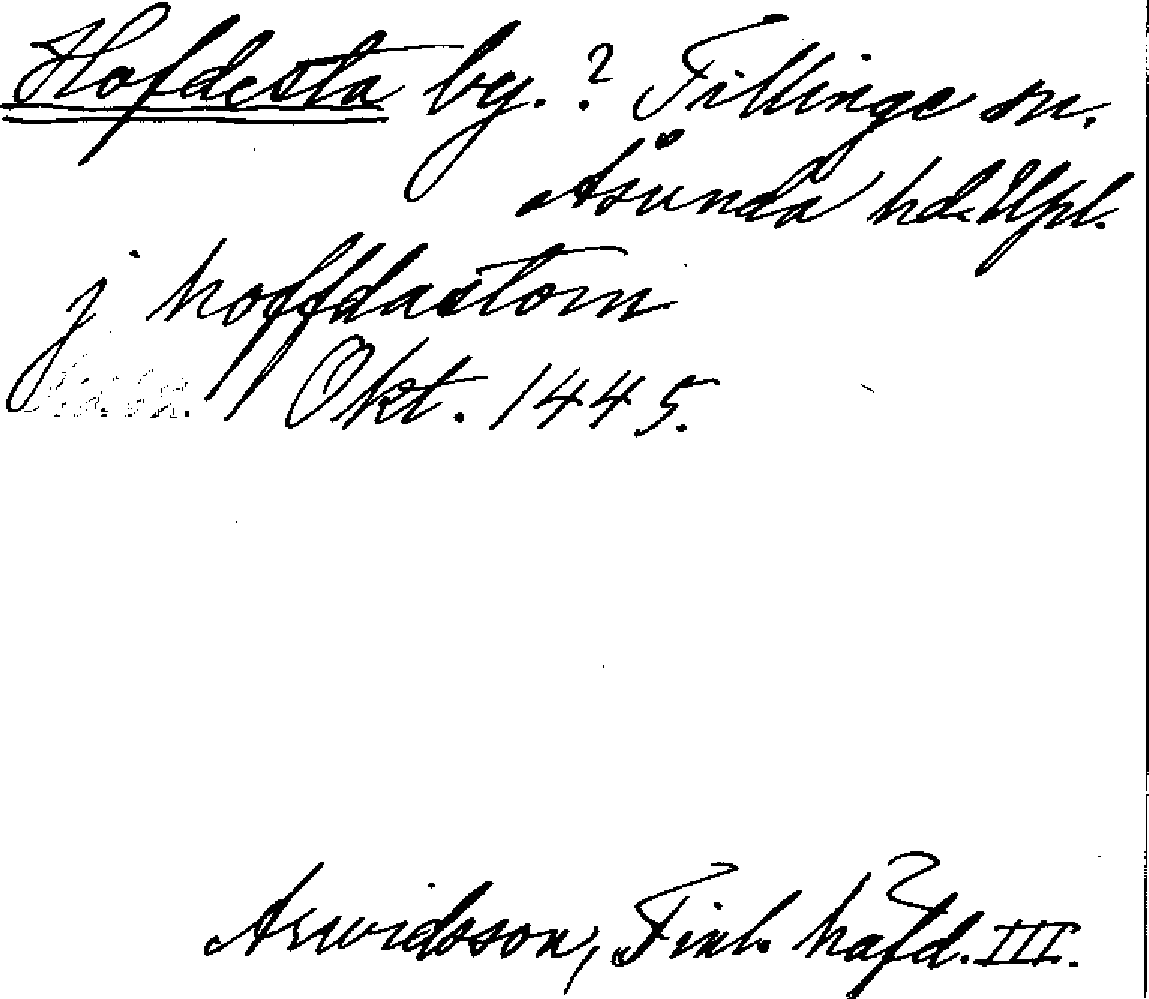 Hofdesta by. ? Tillinge sn.
Åsunda hd. Upl.
j hoffdastom
Okt. 1445.
Arwidsson, Finl. häfd. III.